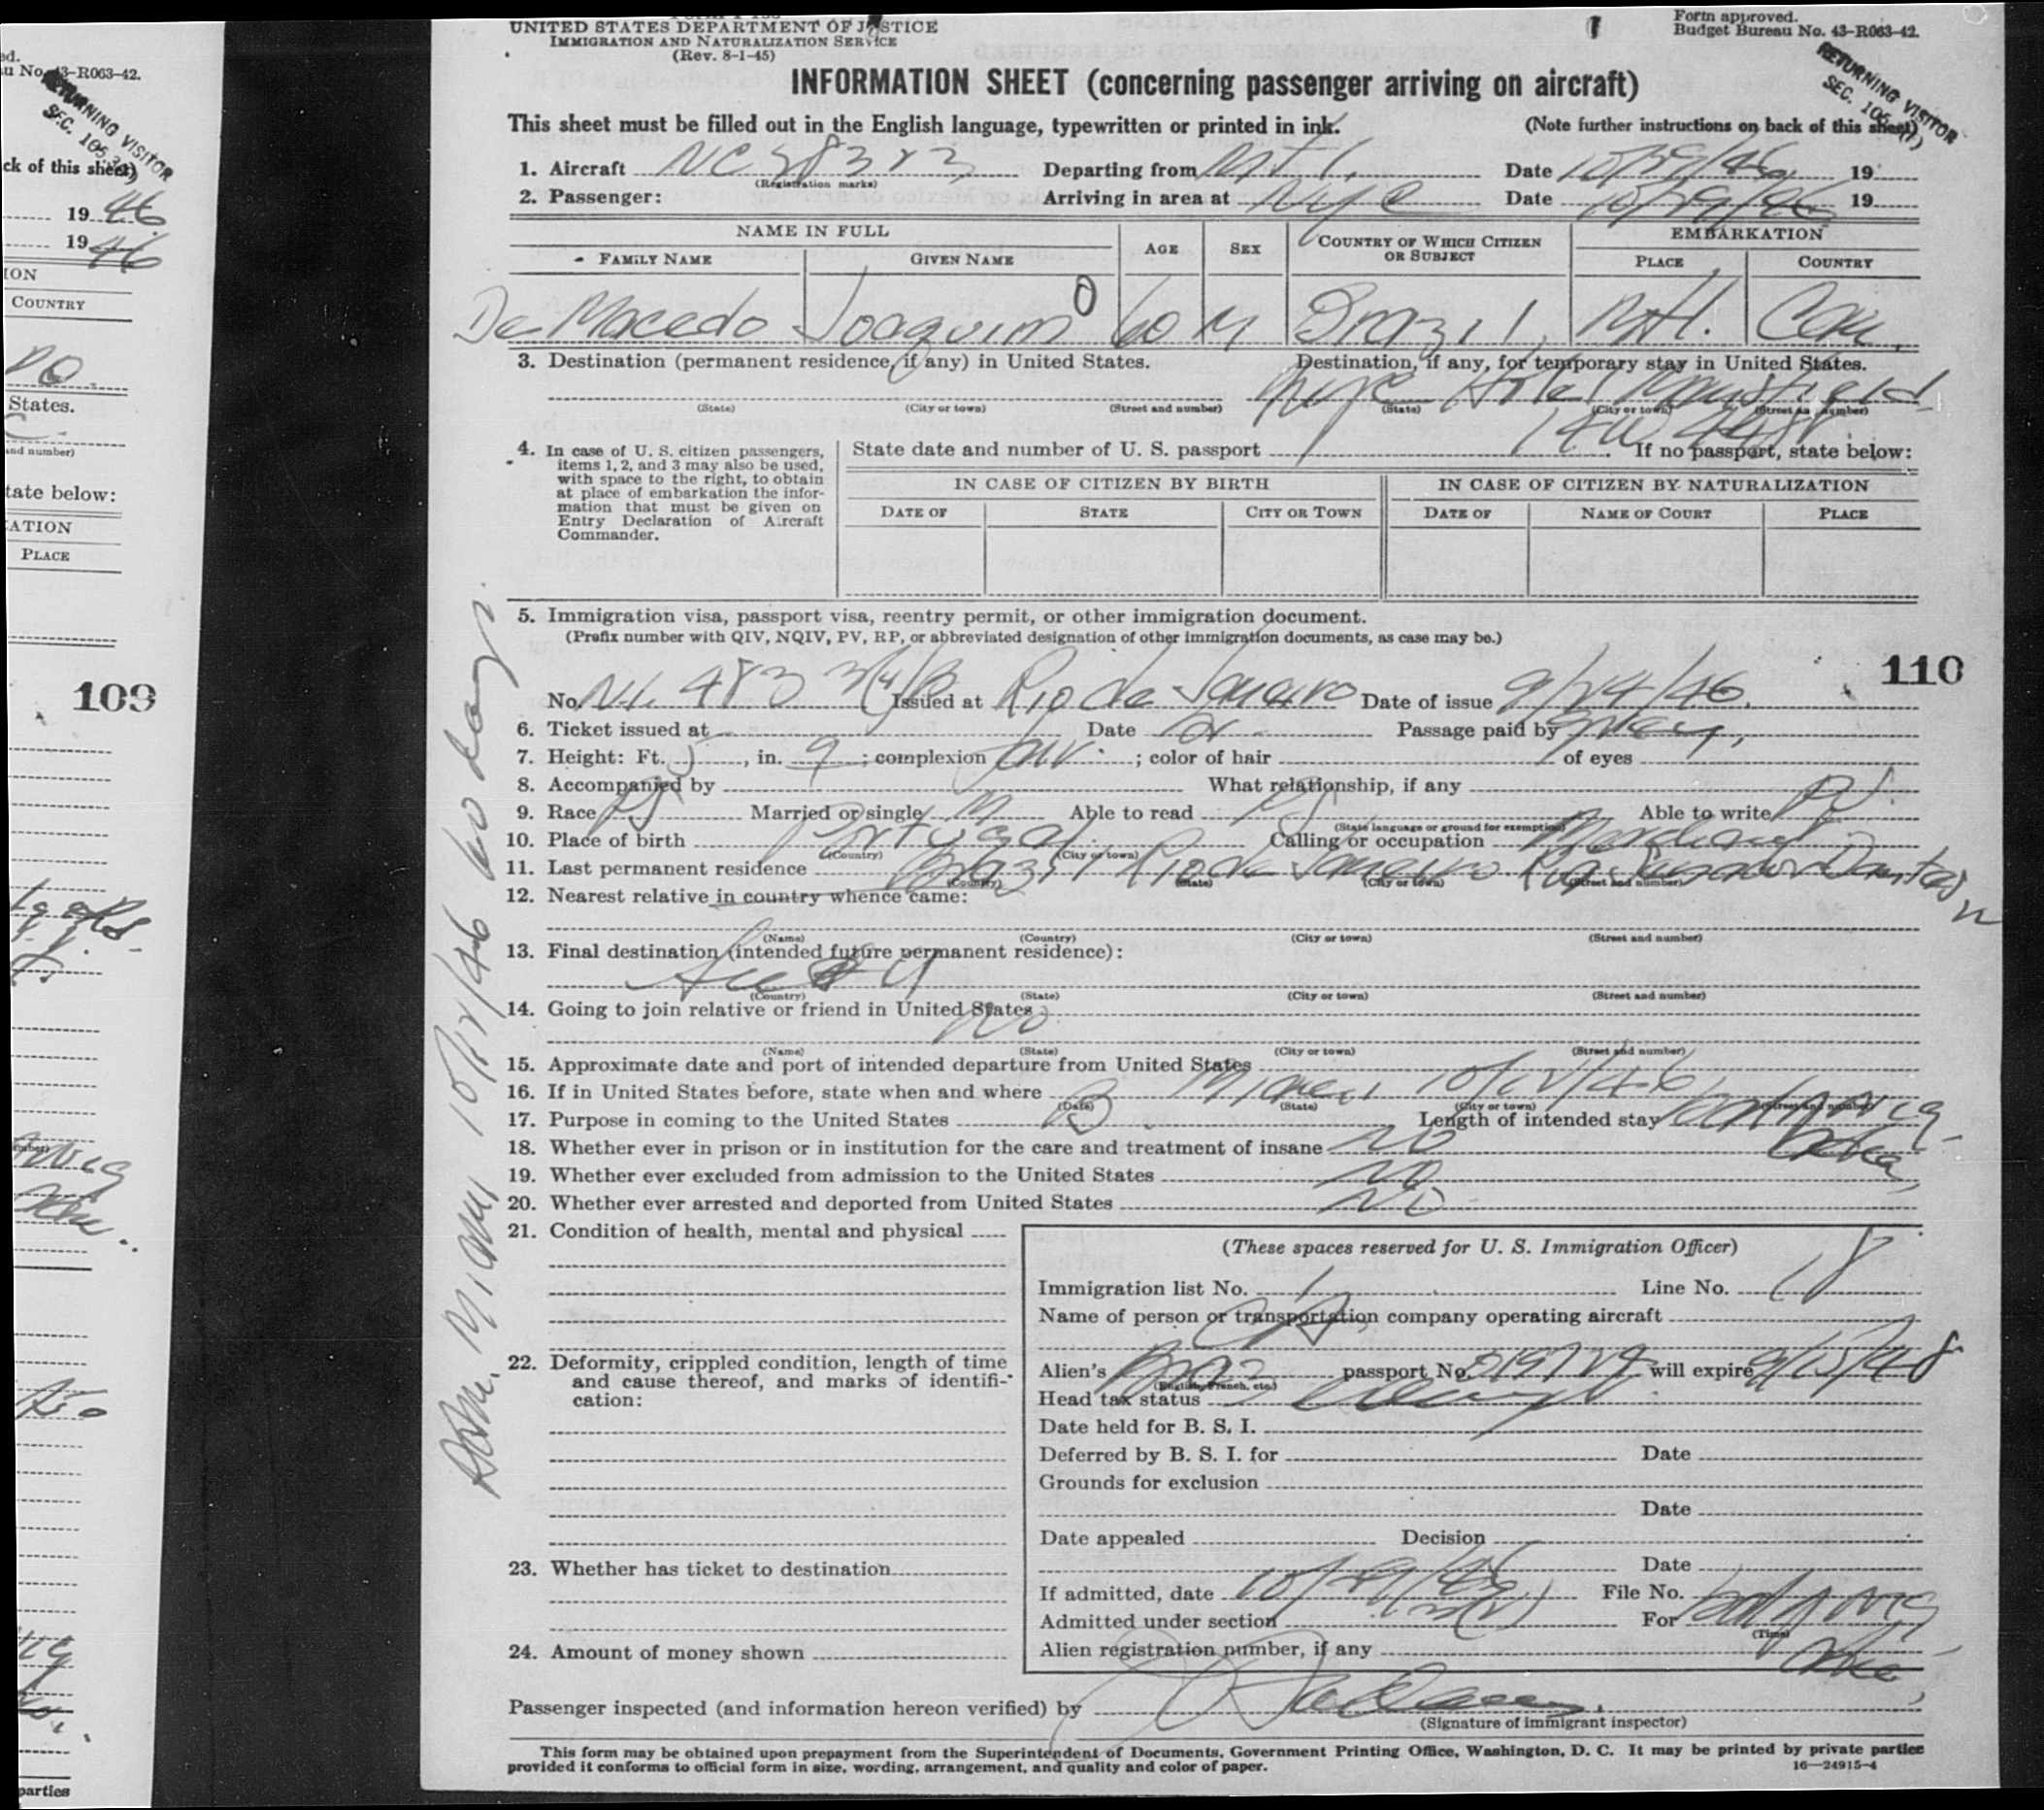 UNITED STATES DEPARTMENT OF JUSTICE
IMMIGRATION AND NATURALIZATION SERVICE
(Rev. 8-1-45)
Form approved.
Budget Bureau No. 43-R063-42.
RETURNING VISITOR
SEC.
INFORMATION SHEET (concerning passenger arriving on aircraft)
This sheet must be filled out in the English language, typewritten or printed in ink. (Note further instructions on back of this sheet)
1. Aircraft NC 28323 Departing from Date 10/29/46 19
(Registration marks)
2. Passenger: Arriving in area at NYC Date 10/29/46 19
NAME IN FULL AGE SEX COUNTRY OF WHICH CITIZEN OR SUBJECT EMBARKATION
FAMILY NAME GIVEN NAME PLACE COUNTRY
De Macedo Joaquim O 60 M Brazil Can.
3. Destination (permanent residence, if any) in United States. Destination, if any, for temporary stay in United States.
NYC Hotel Mansfield
(State) (City or town) (Street and number) (State) (City or town) (Street and number)
4. In case of U. S. citizen passengers, items 1, 2, and 3 may also be used, with space to the right, to obtain at place of embarkation the information that must be given on Entry Declaration of Aircraft Commander.
State date and number of U. S. passport If no passport, state below:
IN CASE OF CITIZEN BY BIRTH IN CASE OF CITIZEN BY NATURALIZATION
DATE OF STATE CITY OR TOWN DATE OF NAME OF COURT PLACE
5. Immigration visa, passport visa, reentry permit, or other immigration document.
(Prefix number with QIV, NQIV, PV, RP, or abbreviated designation of other immigration documents, as case may be.)
110
No. 483 Issued at Rio de Janeiro Date of issue 9/24/46.
6. Ticket issued at Date Passage paid by
7. Height: Ft. 5, in. 9; complexion fair; color of hair of eyes
8. Accompanied by What relationship, if any
9. Race Married or single M Able to read Able to write
(State language or ground for exemption)
10. Place of birth Portugal Calling or occupation Merchant
(Country) (City or town)
11. Last permanent residence Brazil Rio de Janeiro Rua Senador Dantas
(Country) (State) (City or town) (Street and number)
12. Nearest relative in country whence came:
(Name) (Country) (City or town) (Street and number)
13. Final destination (intended future permanent residence):
(Country) (State) (City or town) (Street and number)
14. Going to join relative or friend in United States No
(Name) (State) (City or town) (Street and number)
15. Approximate date and port of intended departure from United States
16. If in United States before, state when and where Miami 10/12/46
(Date) (State) (City or town) (Street and number)
17. Purpose in coming to the United States B Length of intended stay
18. Whether ever in prison or in institution for the care and treatment of insane NO
19. Whether ever excluded from admission to the United States NO
20. Whether ever arrested and deported from United States NO
21. Condition of health, mental and physical
22. Deformity, crippled condition, length of time and cause thereof, and marks of identification:
23. Whether has ticket to destination
24. Amount of money shown
(These spaces reserved for U. S. Immigration Officer)
Immigration list No. 1 Line No. 18
Name of person or transportation company operating aircraft
Alien's Braz passport No. 019729 will expire 9/15/48
(English, French, etc.)
Head tax status
Date held for B. S. I.
Deferred by B. S. I. for Date
Grounds for exclusion
Date
Date appealed Decision
Date
If admitted, date 10/29/46 File No.
Admitted under section 3(2) For
(Time)
Alien registration number, if any
Passenger inspected (and information hereon verified) by
(Signature of immigrant inspector)
This form may be obtained upon prepayment from the Superintendent of Documents, Government Printing Office, Washington, D. C. It may be printed by private parties
provided it conforms to official form in size, wording, arrangement, and quality and color of paper. 16—24915-4
Adm. Miami 10/12/46 60 days.
43-R063-42.
RETURNING VISITOR
ck of this sheet)
19 46
19 46
ION
COUNTRY
States.
and number)
tate below:
PLACE
109
parties